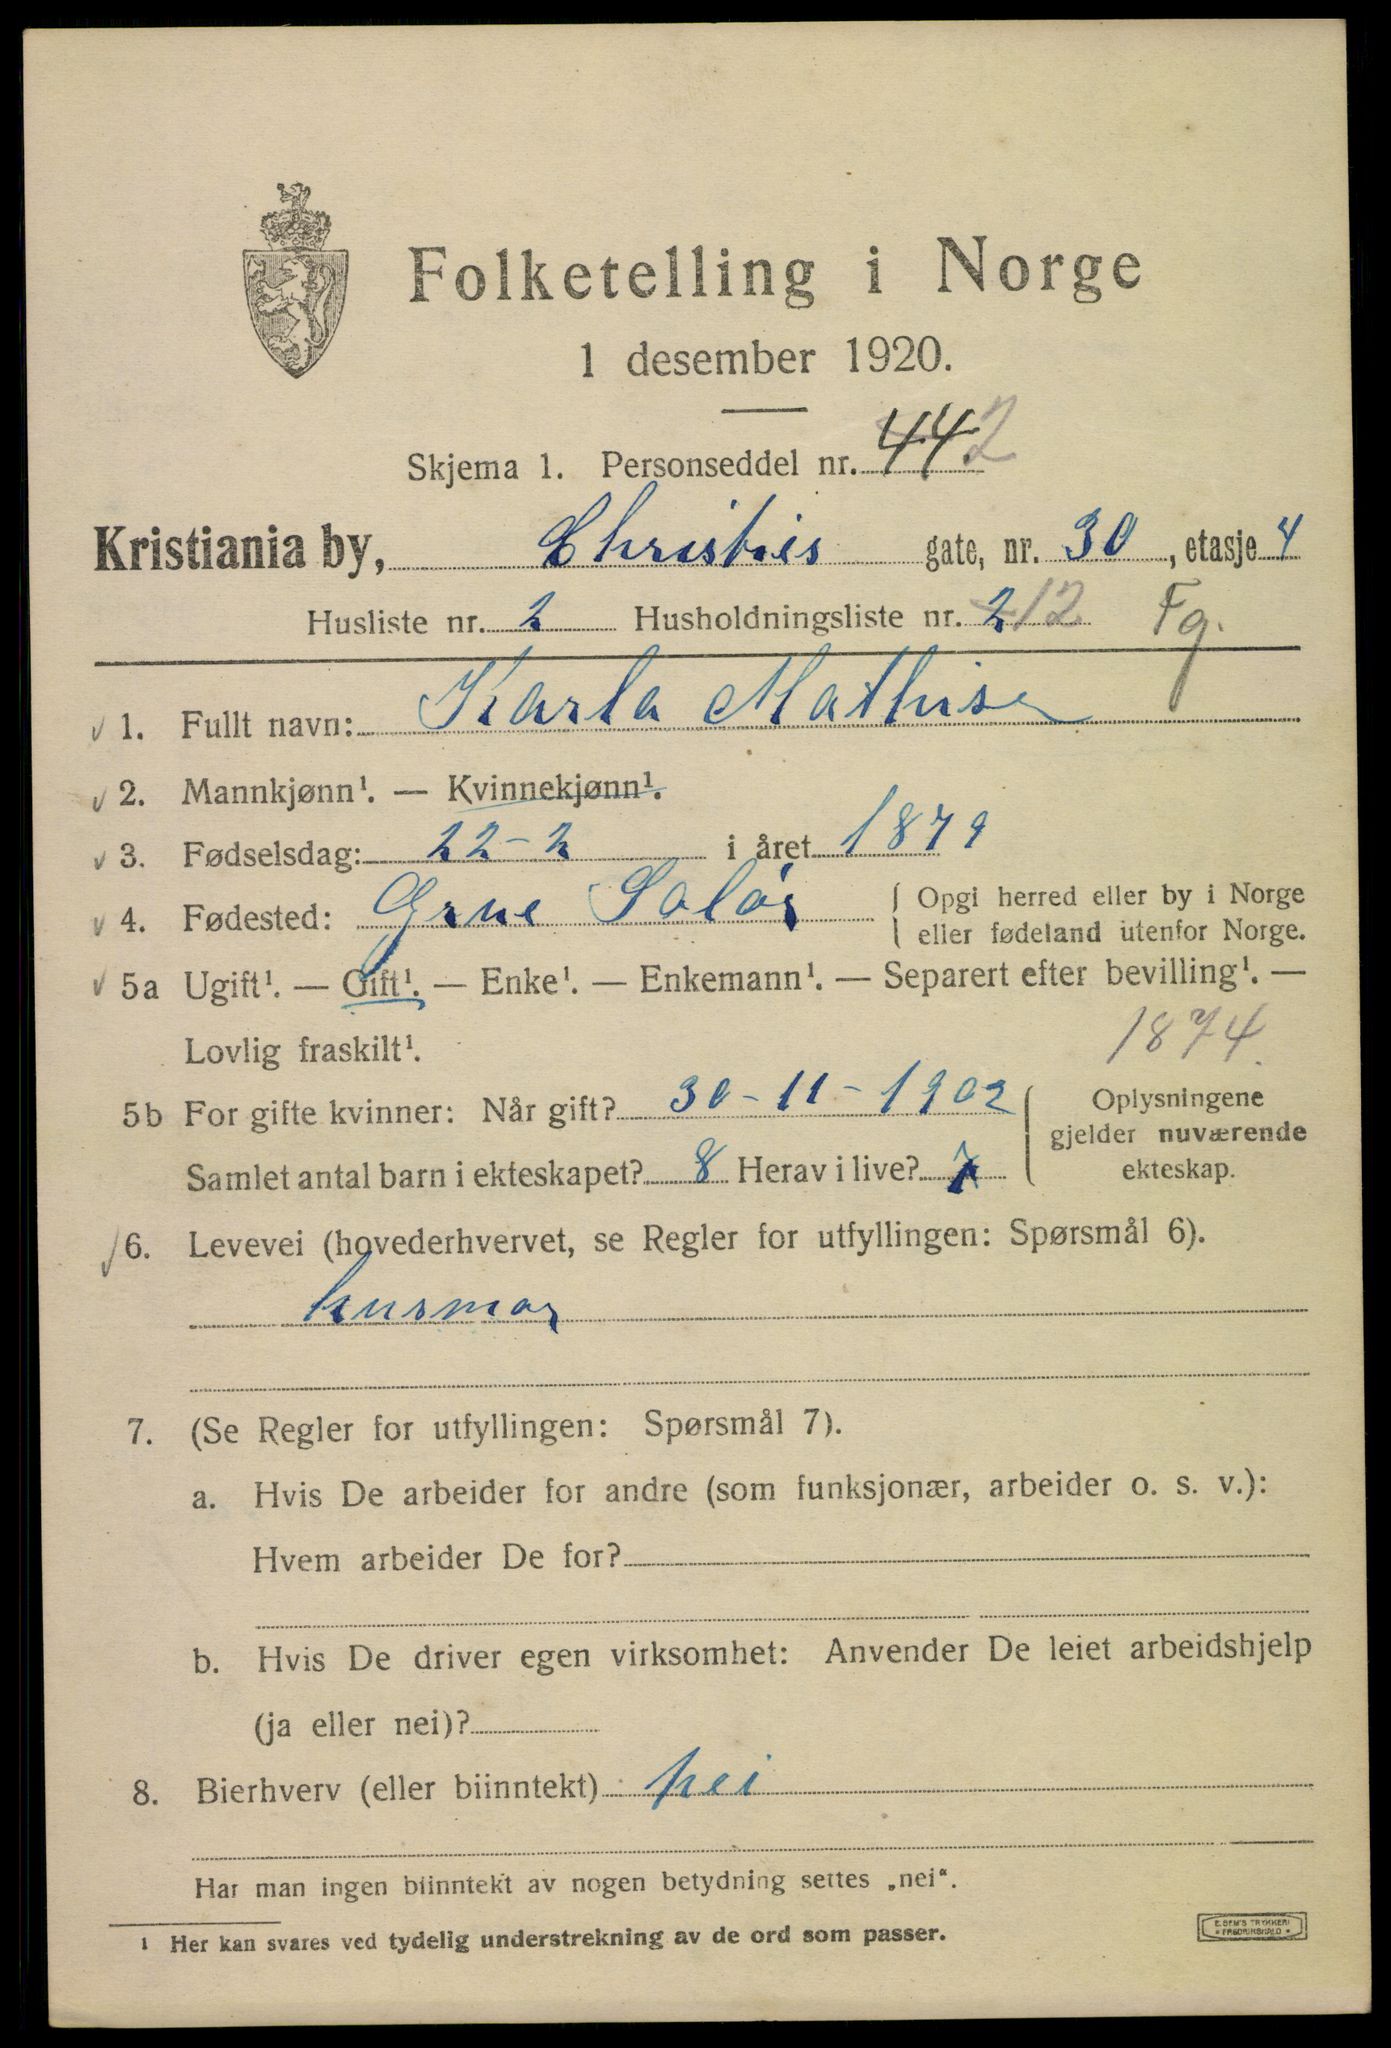 Folketelling i Norge
1 desember 1920.
Skjema 1. Personseddel nr. 442
Kristiania by, Christies gate, nr. 30, etasje 4
Husliste nr. 2 Husholdningsliste nr. 2 12 Fg.
1. Fullt navn: Karla Mathisen
2. Mannkjønn¹. — Kvinnekjønn¹.
3. Fødselsdag: 22-2 i året 1879
4. Fødested: Grue Solør { Opgi herred eller by i Norge
eller fødeland utenfor Norge.
5a Ugift¹. — Gift¹. — Enke¹. — Enkemann¹. — Separert efter bevilling¹. —
Lovlig fraskilt¹. 1874.
5b For gifte kvinner: Når gift? 30-11-1902 { Oplysningene
gjelder nuværende
Samlet antal barn i ekteskapet? 8 Herav i live? 7 ekteskap.
6. Levevei (hovederhvervet, se Regler for utfyllingen: Spørsmål 6).
husmor
7. (Se Regler for utfyllingen: Spørsmål 7).
a. Hvis De arbeider for andre (som funksjonær, arbeider o. s. v.):
Hvem arbeider De for?
b. Hvis De driver egen virksomhet: Anvender De leiet arbeidshjelp
(ja eller nei)?
8. Bierhverv (eller biinntekt) nei
Har man ingen biinntekt av nogen betydning settes „nei“.
¹ Her kan svares ved tydelig understrekning av de ord som passer.
E. SEM'S TRYKKERI
FREDRIKSHALD